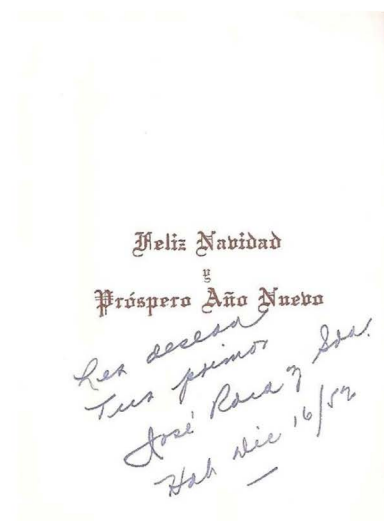 Feliz Navidad
y
Próspero Año Nuevo
Les desean
Tus primos
José Roca y Sra.
Hab Dic 16/52